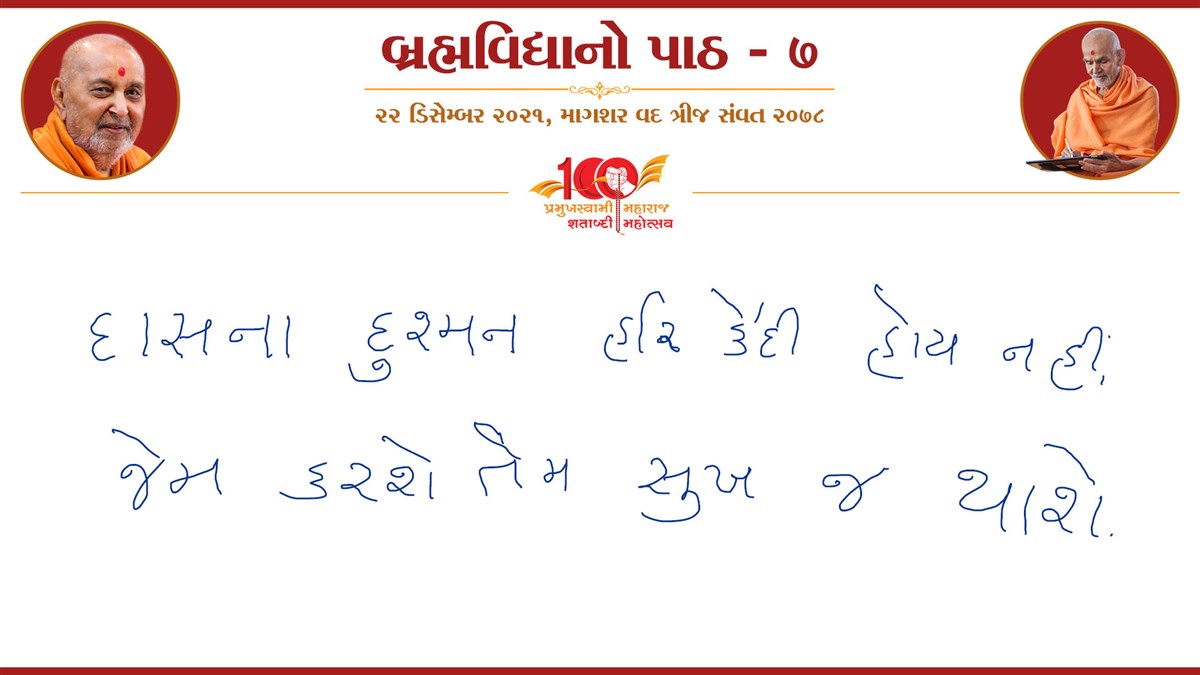 બ્રહ્મવિદ્યાનો પાઠ - ૭
૨૨ ડિસેમ્બર ૨૦૨૧, માગશર વદ ત્રીજ સંવત ૨૦૭૮
100
પ્રમુખસ્વામી મહારાજ
શતાબ્દી મહોત્સવ
દાસના દુશ્મન હરિ કે'દી હોય નહીં,
જેમ કરશે તેમ સુખ જ થાશે.